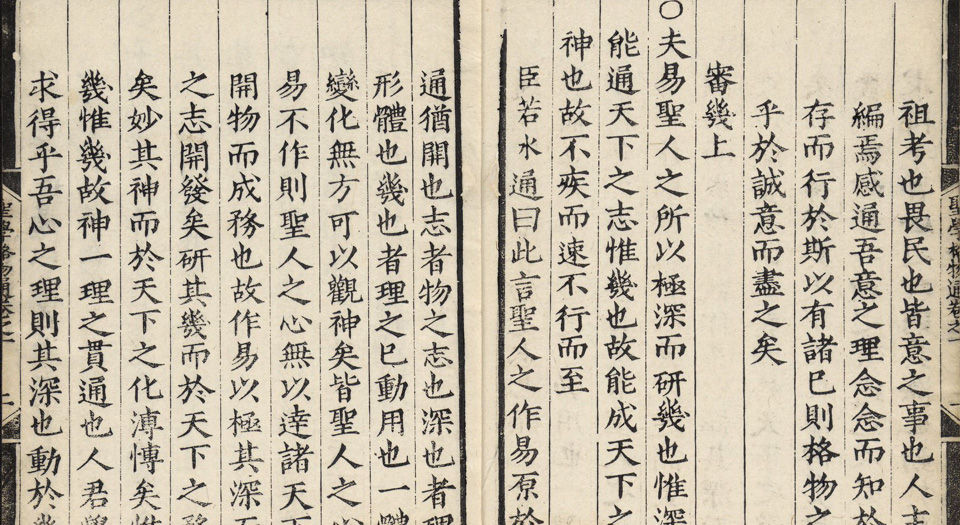 祖考也畏民也皆意之事也人
編焉感通吾意之理念念而知於
存而行於斯以有諸已則格物之
乎於誠意而盡之矣
審幾上
○夫易聖人之所以極深而研幾也惟深
能通天下之志惟幾也故能成天下之
神也故不疾而速不行而至
臣若水通曰此言聖人之作易原於
通猶開也志者物之志也深也者理
形體也幾也者理之已動用也一體
變化無方可以觀神矣皆聖人之心
易不作則聖人之心無以達諸天下
開物而成務也故作易以極其深而
之志開發矣研其幾而於天下之務
矣妙其神而於天下之化溥博矣惟
幾惟幾故神一理之貫通也人君學
求得乎吾心之理則其深也動於幾
聖學格物通卷之一